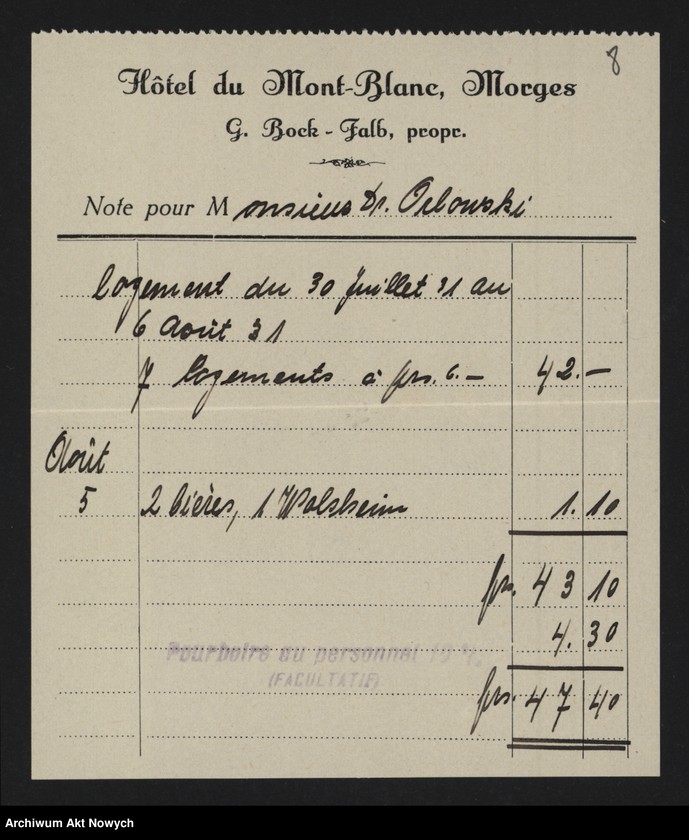 8
Hôtel du Mont-Blanc, Morges
G. Bock-Falb, propr.
Note pour Monsieur Dr. Orlowski
logement du 30 Juillet 31 au
6 Août 31
7 logements à frs. 6.— 42.—
Août
5 2 bières, 1 Wolsheim 1.10
frs. 43 10
4.30
Pourboire au personnel 10 %
(FACULTATIF)
frs. 47 40
Archiwum Akt Nowych